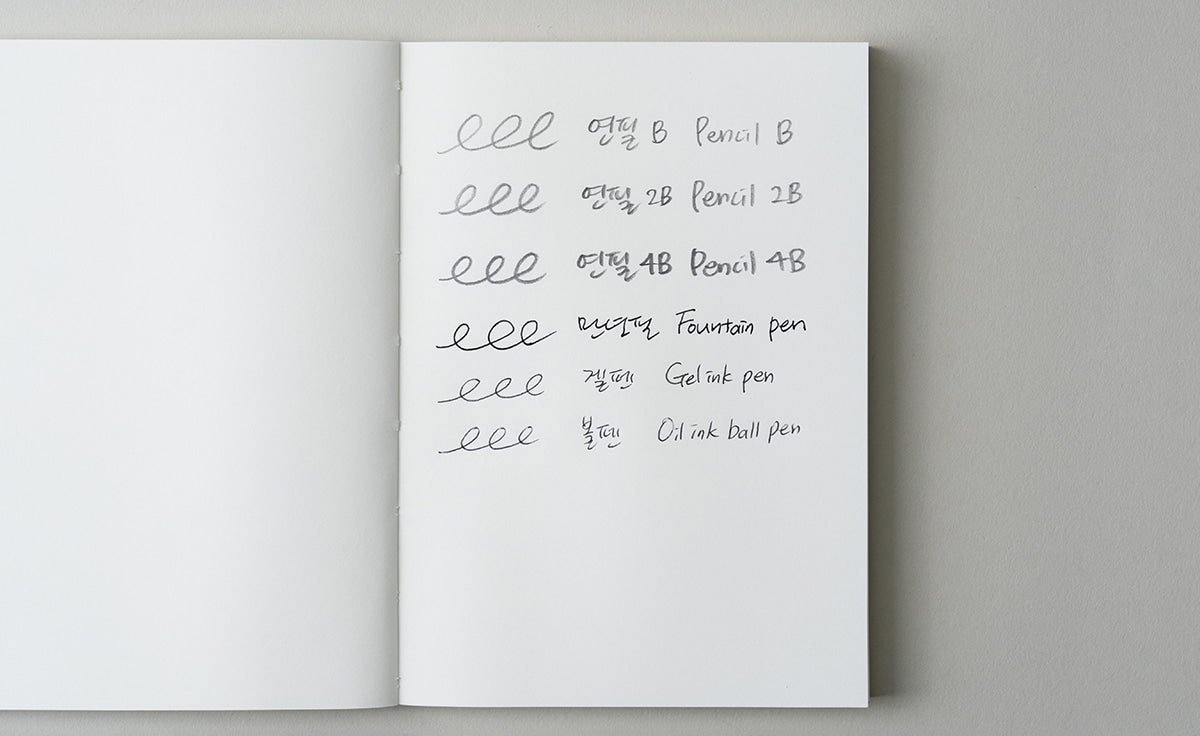 연필 B Pencil B
연필 2B Pencil 2B
연필 4B Pencil 4B
만년필 Fountain pen
겔펜 Gel ink pen
볼펜 Oil ink ball pen